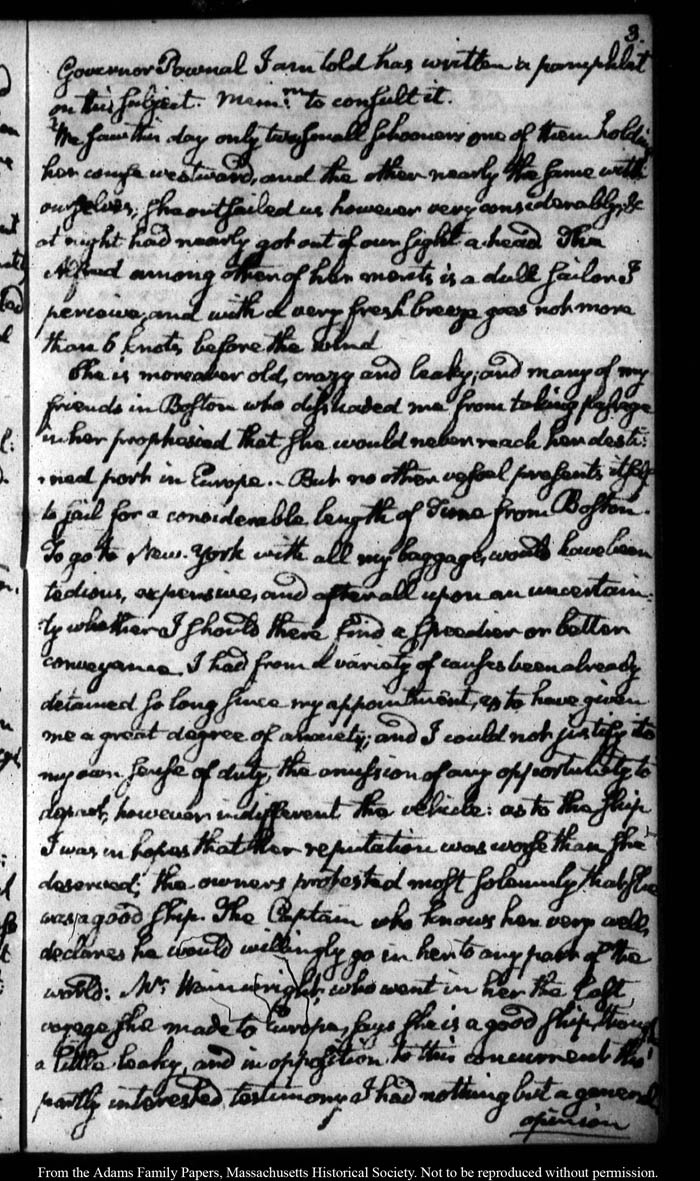 3.
Governor Pownal I am told has written a pamphlet
on this subject. Mem: to consult it.
We saw this day only two small schooners one of them holding
her course westward, and the other nearly the same with
ourselves; she outsailed us however very considerably, &
at night had nearly got out of our sight ahead. The
Alfred among other of her merits is a dull sailor I
perceive, and with a very fresh breeze goes not more
than 6 knots before the wind
She is moreover old, crazy and leaky; and many of my
friends in Boston who dissuaded me from taking passage
in her prophesied that she would never reach her desti:
ned port in Europe. But no other vessel presents itself
to sail for a considerable length of Time from Boston.
To go to New-York with all my baggage, would have been
tedious, expensive, and after all upon an uncertain:
ty whether I should there find a speedier or better
conveyance. I had from a variety of causes been already
detained so long since my appointment, as to have given
me a great degree of anxiety; and I could not justify to
my own sense of duty, the omission of any opportunity to
depart, however indifferent the vehicle: as to the ship
I was in hopes that her reputation was worse than she
deserved; the owners protested most solemnly that she
was a good ship. The Captain who knows her very well,
declares he would willingly go in her to any part of the
world: Mr. Wainwright, who went in her the last
voyage she made to Europe, says she is a good ship, though
a little leaky, and in opposition to this concurrent tho'
partly interested testimony I had nothing but a general
opinion
From the Adams Family Papers, Massachusetts Historical Society. Not to be reproduced without permission.